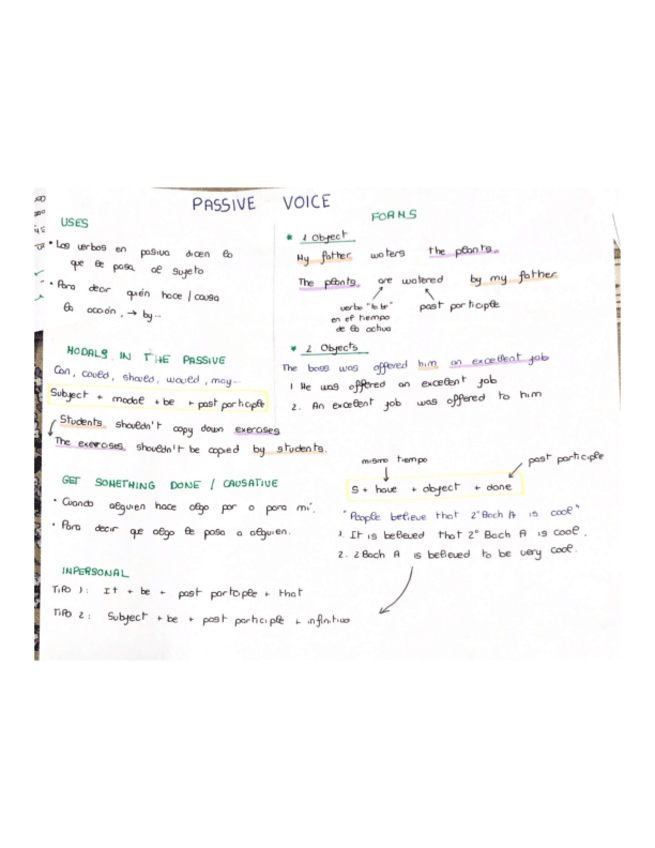 PASSIVE VOICE
USES
• Los verbos en pasiva dicen lo
que le pasa al sujeto
• Para decir quién hace / causa
la acción, → by...
MODALS IN THE PASSIVE
Can, could, should, would, may...
Subject + modal + be + past participle
Students shouldn't copy down exercises
The exercises shouldn't be copied by students.
GET SOMETHING DONE / CAUSATIVE
• Cuando alguien hace algo por o para mí.
• Para decir que algo le pasa a alguien.
INPERSONAL
TIPO 1: It + be + past participle + that
TIPO 2: Subject + be + past participle + infinitivo
FORMS
* 1 Object
My father waters the plants.
The plants are watered by my father
verbo "to be"
en el tiempo
de la activa
past participle
* 2 Objects
The boss was offered him an excellent job
1 He was offered an excellent job
2. An excellent job was offered to him
mismo tiempo
past participle
S + have + object + done
"People believe that 2º Bach A is cool"
1. It is believed that 2º Bach A is cool.
2. 2 Bach A is believed to be very cool.